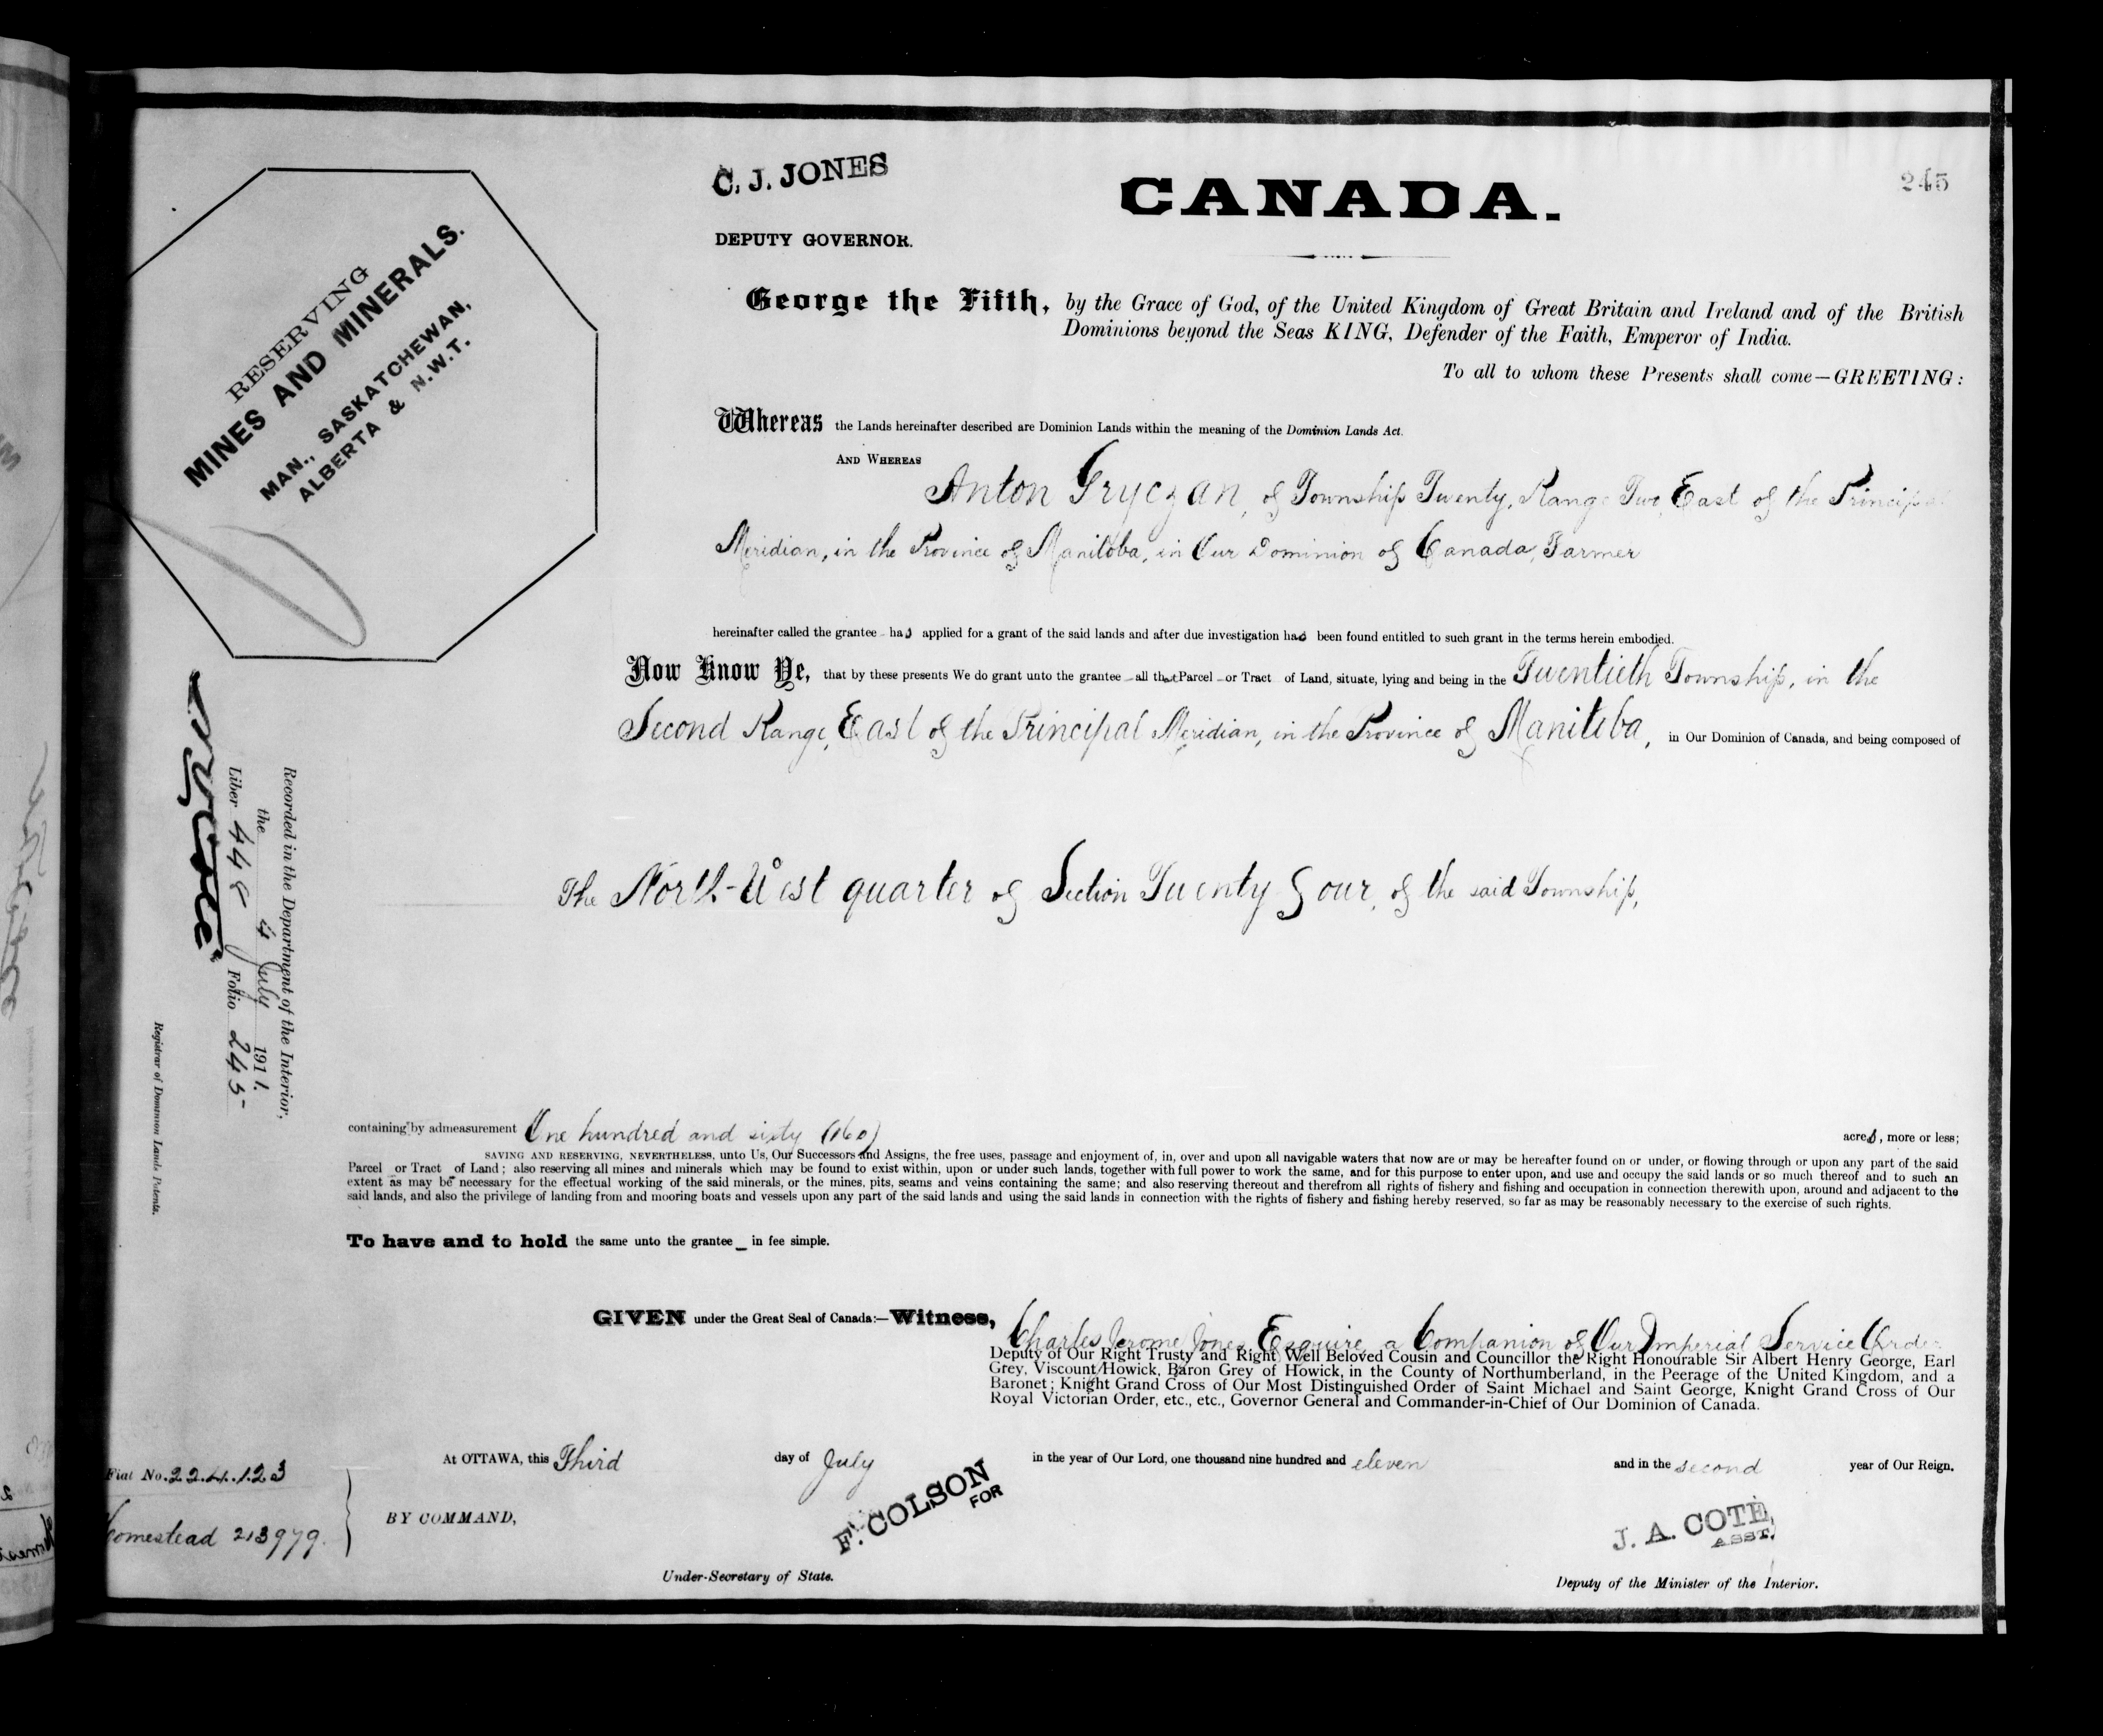 C. J. JONES
DEPUTY GOVERNOR.
CANADA.
245
RESERVING
MINES AND MINERALS.
MAN., SASKATCHEWAN,
ALBERTA & N.W.T.
George the Fifth, by the Grace of God, of the United Kingdom of Great Britain and Ireland and of the British
Dominions beyond the Seas KING, Defender of the Faith, Emperor of India.
To all to whom these Presents shall come—GREETING:
Whereas the Lands hereinafter described are Dominion Lands within the meaning of the Dominion Lands Act.
AND WHEREAS
Anton Gryczan, of Township Twenty, Range Two, East of the Principal
Meridian, in the Province of Manitoba, in Our Dominion of Canada, Farmer
hereinafter called the grantee - has applied for a grant of the said lands and after due investigation has been found entitled to such grant in the terms herein embodied.
Now Know Ye, that by these presents We do grant unto the grantee - all that Parcel - or Tract of Land, situate, lying and being in the Twentieth Township, in the
Second Range, East of the Principal Meridian, in the Province of Manitoba, in Our Dominion of Canada, and being composed of
The North-West quarter of Section Twenty Four, of the said Township,
Recorded in the Department of the Interior,
the 4 July 1911.
Liber 448 Folio 245
Registrar of Dominion Lands Patents.
containing by admeasurement One hundred and sixty (160) acres, more or less;
SAVING AND RESERVING, NEVERTHELESS, unto Us, Our Successors and Assigns, the free uses, passage and enjoyment of, in, over and upon all navigable waters that now are or may be hereafter found on or under, or flowing through or upon any part of the said
Parcel or Tract of Land; also reserving all mines and minerals which may be found to exist within, upon or under such lands, together with full power to work the same, and for this purpose to enter upon, and use and occupy the said lands or so much thereof and to such an
extent as may be necessary for the effectual working of the said minerals, or the mines, pits, seams and veins containing the same; and also reserving thereout and therefrom all rights of fishery and fishing and occupation in connection therewith upon, around and adjacent to the
said lands, and also the privilege of landing from and mooring boats and vessels upon any part of the said lands and using the said lands in connection with the rights of fishery and fishing hereby reserved, so far as may be reasonably necessary to the exercise of such rights.
To have and to hold the same unto the grantee _ in fee simple.
GIVEN under the Great Seal of Canada:—Witness, Charles Jerome Jones Esquire, a Companion of Our Imperial Service Order
Deputy of Our Right Trusty and Right Well Beloved Cousin and Councillor the Right Honourable Sir Albert Henry George, Earl
Grey, Viscount Howick, Baron Grey of Howick, in the County of Northumberland, in the Peerage of the United Kingdom, and a
Baronet; Knight Grand Cross of Our Most Distinguished Order of Saint Michael and Saint George, Knight Grand Cross of Our
Royal Victorian Order, etc., etc., Governor General and Commander-in-Chief of Our Dominion of Canada.
At OTTAWA, this Third day of July in the year of Our Lord, one thousand nine hundred and eleven and in the second year of Our Reign.
Fiat No. 224123
Homestead 213979.
BY COMMAND,
F. COLSON
FOR
Under-Secretary of State.
J. A. COTE,
ASST.
Deputy of the Minister of the Interior.